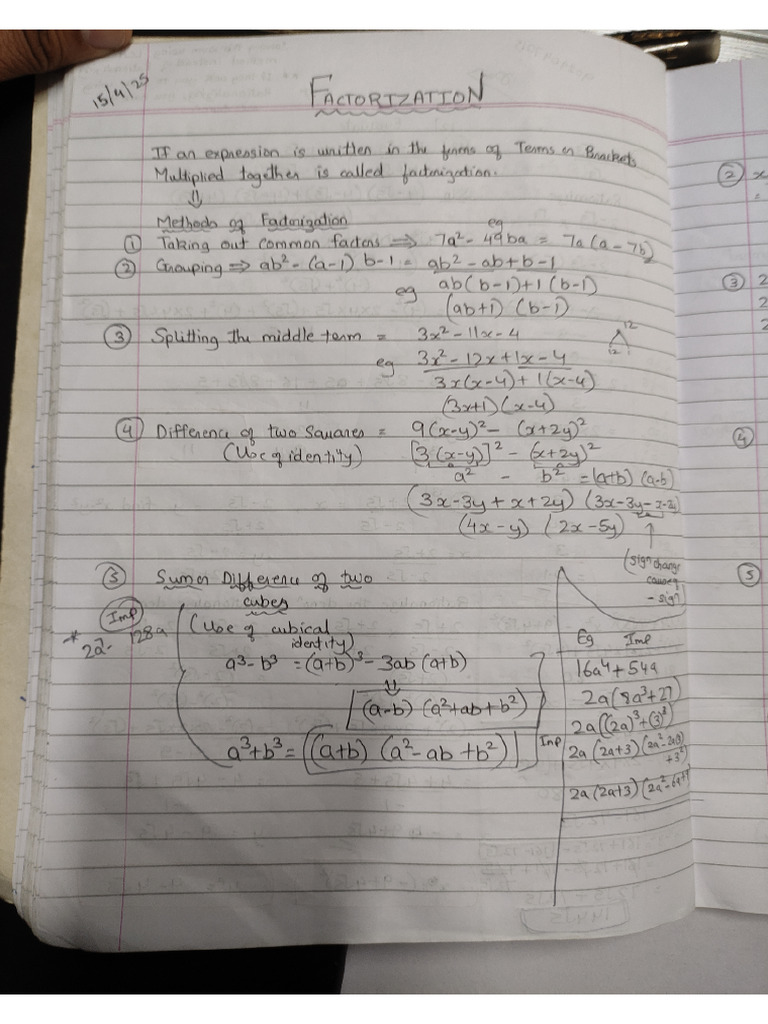 15/4/25
FACTORIZATION
If an expression is written in the forms of Terms or Brackets
Multiplied together is called factorization.
⇓
Methods of Factorization
① Taking out common factors ⇒ eg 7a² - 49ba = 7a(a - 7b)
② Grouping ⇒ ab² - (a-1) b-1 = ab² - ab + b - 1
eg ab(b-1)+1(b-1)
(ab+1) (b-1)
③ Splitting the middle term = 3x² - 11x - 4
eg 3x² - 12x + 1x - 4
3x(x-4) + 1(x-4)
(3x+1) (x-4)
12
12 1
④ Difference of two Squares = 9(x-y)² - (x+2y)²
(Use of identity) [3(x-y)]² - (x+2y)²
a² - b² = (a+b) (a-b)
(3x-3y + x+2y) (3x-3y-x-2y)
(4x-y) (2x-5y)
(sign change
- sign)
⑤ Sum or Difference of two
cubes
Imp
* 128a
(Use of cubical
identity)
a³-b³ = (a+b)³ - 3ab (a+b)
⇓
(a-b) (a²+ab+b²)
a³+b³ = (a+b) (a²-ab+b²) Imp
Eg Imp
16a⁴ + 54a
2a(8a³+27)
2a((2a)³+(3)³)
2a(2a+3)(2a²-2a(3)
+3²)
2a(2a+3)(2a²-6a+
②
③ 2
2
2
④
⑤